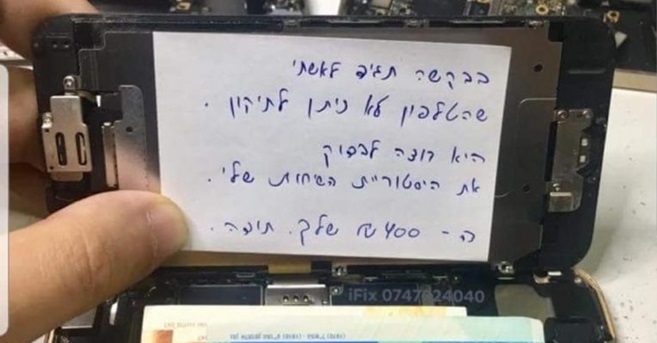 בבקשה תגיד לאשתי
שהטלפון לא ניתן לתיקון.
היא רוצה לבדוק
את היסטוריית השיחות שלי.
ה- 400 ₪ שלך. תודה.
iFix 0747424040